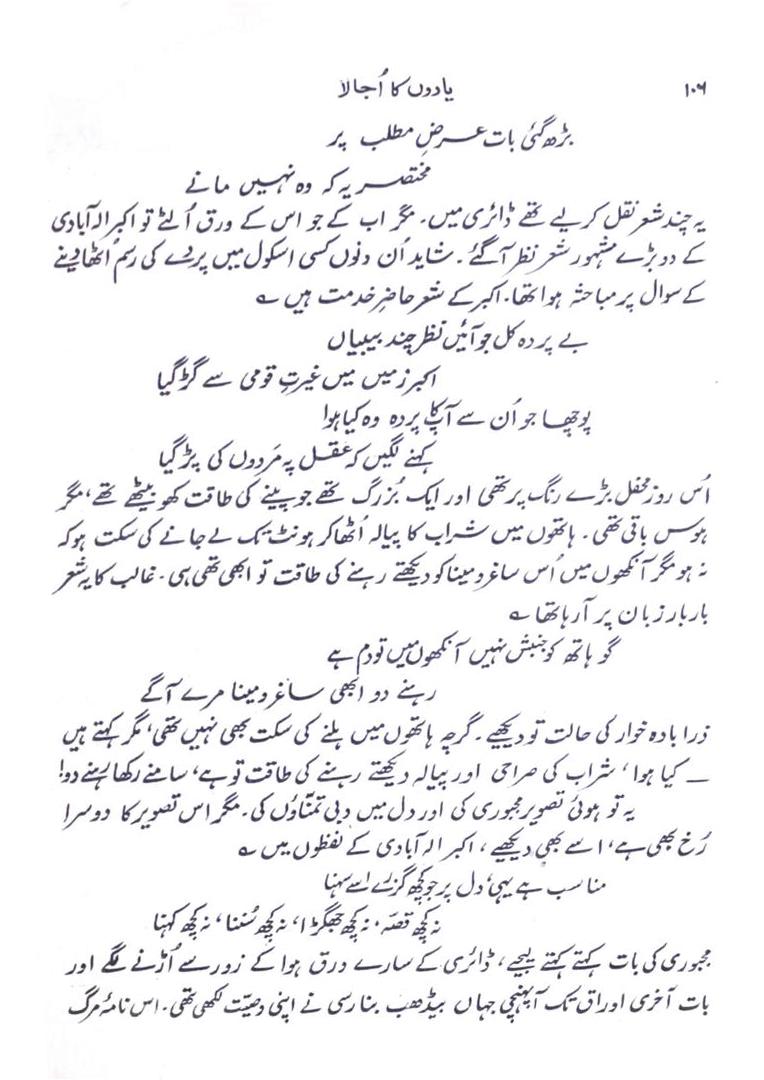 ۱۰۶
یادوں کا اُجالا
بڑھ گئی بات عرضِ مطلب پر
مختصر یہ کہ وہ نہیں مانے
یہ چند شعر نقل کر لیے تھے ڈائری میں۔ مگر اب کے جو اس کے ورق اُلٹے تو اکبر الہ آبادی
کے دو بڑے مشہور شعر نظر آگئے۔ شاید اُن دنوں کسی اسکول میں پردے کی رسم اُٹھا دینے
کے سوال پر مباحثہ ہوا تھا۔ اکبر کے شعر حاضرِ خدمت ہیں ؎
بے پردہ کل جو آئیں نظر چند بیبیاں
اکبر زمیں میں غیرتِ قومی سے گڑ گیا
پوچھا جو اُن سے آپ کا پردہ وہ کیا ہوا
کہنے لگیں کہ عقل پہ مَردوں کی پڑ گیا
اُس روز محفل بڑے رنگ پر تھی اور ایک بُزرگ تھے جو پینے کی طاقت کھو بیٹھے تھے، مگر
ہوس باقی تھی۔ ہاتھوں میں شراب کا پیالہ اُٹھا کر ہونٹ تک لے جانے کی سکت ہو کہ
نہ ہو مگر آنکھوں میں اُس ساغر و مینا کو دیکھتے رہنے کی طاقت تو ابھی تھی ہی۔ غالب کا یہ شعر
بار بار زبان پر آ رہا تھا ؎
گو ہاتھ کو جنبش نہیں آنکھوں میں تو دم ہے
رہنے دو ابھی ساغر و مینا مرے آگے
ذرا بادہ خوار کی حالت تو دیکھیے۔ گرچہ ہاتھوں میں ہلنے کی سکت بھی نہیں تھی، مگر کہتے ہیں
— کیا ہوا، شراب کی صراحی اور پیالہ دیکھتے رہنے کی طاقت تو ہے، سامنے رکھا رہنے دو!
یہ تو ہوئی تصویر مجبوری کی اور دل میں دبی تمنّاؤں کی۔ مگر اس تصویر کا دوسرا
رُخ بھی ہے، اسے بھی دیکھیے، اکبر الہ آبادی کے لفظوں میں ؎
مناسب ہے یہی، دل پر جو کچھ گزرے اسے سہنا
نہ کچھ قصّہ، نہ کچھ جھگڑا، نہ کچھ سُننا، نہ کچھ کہنا
مجبوری کی بات کہتے کہتے لیجیے، ڈائری کے سارے ورق ہوا کے زور سے اُڑنے لگے اور
بات آخری اوراق تک آپہنچی جہاں بیڈھب بنارسی نے اپنی وصیّت لکھی تھی۔ اس نامۂ مرگ